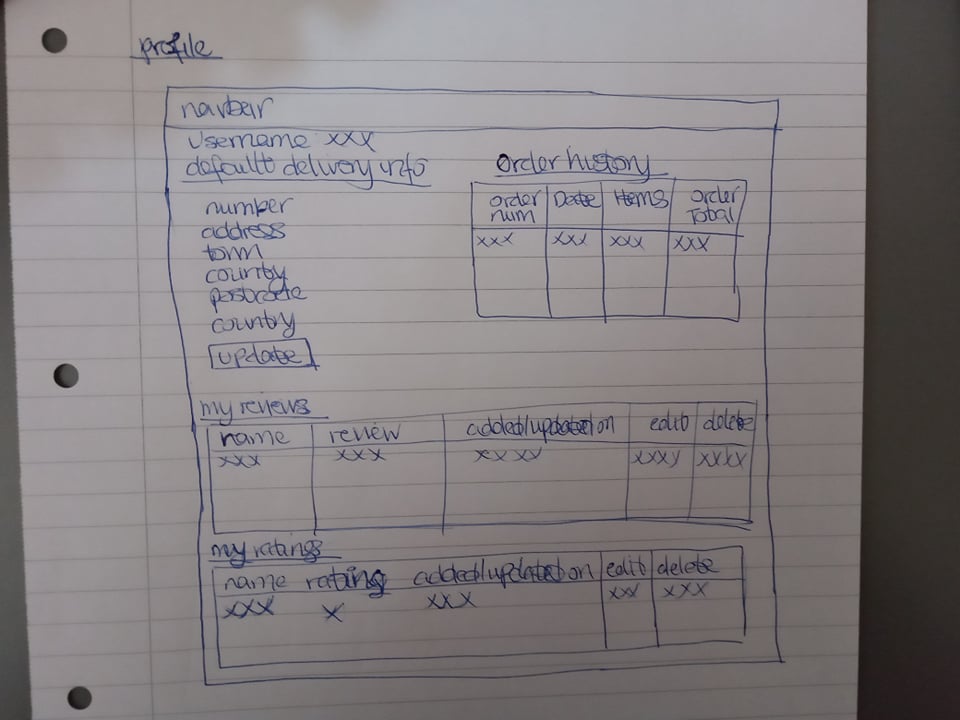 profile
navbar
username xxx
default delivery info
number
address
town
county
postcode
country
update
order history
order num Date Items order Total
xxx xxx xxx xxx
my reviews
name review added/updated on edit delete
xxx xxx xxxx xxxy xxxx
my ratings
name rating added/updated on edit delete
xxx x xxx xxx xxx